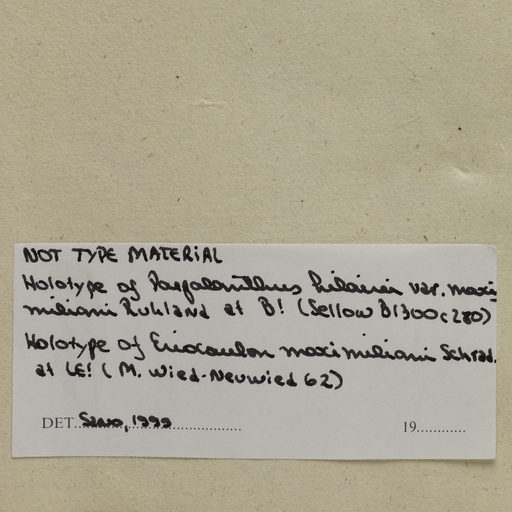 NOT TYPE MATERIAL
Holotype of Paepalanthus hilairei var. maxi
miliani Ruhland at B! (Sellow B1300c280)
Holotype of Eriocaulon maximiliani Schrad.
at LE! (M. Wied-Neuwied 62)
DET. Sano, 1999
19............